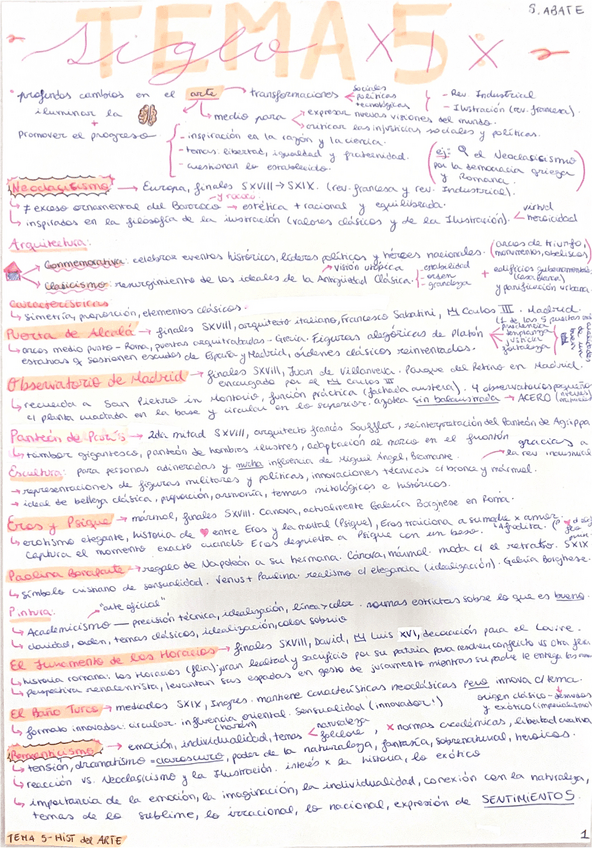 S. ABATE
TEMA 5:
Siglo XIX
profundos cambios en el arte → transformaciones sociales políticas tecnológicas - Rev. Industrial
- Ilustración (rev. francesa).
iluminar la
+
promover el progreso
medio para expresar nuevas visiones del mundo.
criticar las injusticias sociales y políticas.
- inspiración en la razón y la ciencia.
- temas: libertad, igualdad y fraternidad.
- cuestionar lo establecido.
ej: el Neoclasicismo
por la democracia griega
y Romana.
Neoclasicismo → Europa, finales SXVIII → SXIX. (rev. francesa y rev. Industrial).
↳ ≠ exceso ornamental del Barroco y rococo → estética + racional y equilibrada.
↳ inspirados en la filosofía de la ilustración (valores clásicos y de la Ilustración). virtud
heroicidad
Arquitectura:
Conmemorativa: celebrar eventos históricos, líderes políticos y héroes nacionales. (arcos de triunfo, monumentos, obeliscos)
Clasicismo: resurgimiento de los ideales de la Antigüedad Clásica.
visión utópica - estabilidad
- orden
- grandeza
+ edificios gubernamentales (casa blanca)
y planificación urbana.
Características
↳ Simetría, proporción, elementos clásicos.
Puerta de Alcalá → finales SXVIII, arquitecto italiano, Francesco Sabatini, Carlos III. Madrid.
↳ arcos medio punto - Roma, puertas arquitrabadas - Grecia. Figuras alegóricas de Platón
prudencia
templanza
justicia
fortaleza
sostienen escudos de España y Madrid, órdenes clásicos reinventados.
Observatorio de Madrid → finales SXVIII, Juan de Villanueva. Parque del Retiro en Madrid.
encargado por el Carlos III
↳ recuerda a San Pietro in Montorio, función práctica (fachada austera). 4 observatorios pequeños
c/ planta cuadrada en la base y circular en lo superior. azotea sin balaustrada → ACERO
Panteón de París → 2da mitad SXVIII, arquitecto francés Soufflot, reinterpretación del Panteón de Agrippa
↳ tambor gigantesco, panteón de hombres ilustres, adaptación al marco en el frontón gracias a
la rev industrial
Escultura: para personas adineradas y mucha influencia de Miguel Ángel, Bramante.
→ representaciones de figuras militares y políticas, innovaciones técnicas c/ bronce y mármol.
↳ ideal de belleza clásica, proporción, armonía, temas mitológicos e históricos.
Eros y Psique → mármol, finales SXVIII. Canova, actualmente Galería Borghese en Roma.
↳ erotismo elegante, historia de ♥ entre Eros y la mortal (Psique), Eros traiciona a su madre x amor.
Afrodita.
captura el momento exacto cuando Eros despierta a Psique con un beso.
Paolina Bonaparte → regalo de Napoleón a su hermana. Cánova, mármol. moda c/ el retrato. SXIX
↳ símbolo cristiano de sensualidad. Venus + Paulina. realismo c/ elegancia (idealización). Galería Borghese.
Pintura.
"arte oficial"
↳ Academicismo — precisión técnica, idealización, línea > color. normas estrictas sobre lo que es bueno.
↳ claridad, orden, temas clásicos, idealización, color sobrio
El Juramento de los Horacios → finales SXVIII, David, Luis XVI, decoración para el Louvre.
↳ historia romana: los Horacios (flia): juran lealtad y sacrificio por su patria para resolver conflicto vs otra flia
↳ perspectiva renacentista, levantan sus espadas en gesto de juramento mientras su padre le entrega las
El Baño Turco → mediados SXIX, Ingres. mantiene características neoclásicas pero innova c/ tema.
origen clásico - desnudos
y exótico (imperialismo)
↳ formato innovador: circular. influencia oriental. Sensualidad (innovador!)
Romanticismo → emoción, individualidad, temas naturaleza
folclore, x normas académicas, libertad creativa
↳ tensión, dramatismo = claroscuro, poder de la naturaleza, fantasía, sobrenatural, heroicos.
↳ reacción vs. Neoclasicismo y la Ilustración. interés x la historia, lo exótico
↳ importancia de la emoción, la imaginación, la individualidad, conexión con la naturaleza,
temas de lo sublime, lo irracional, lo nacional, expresión de SENTIMIENTOS.
TEMA 5 - HIST del ARTE
1